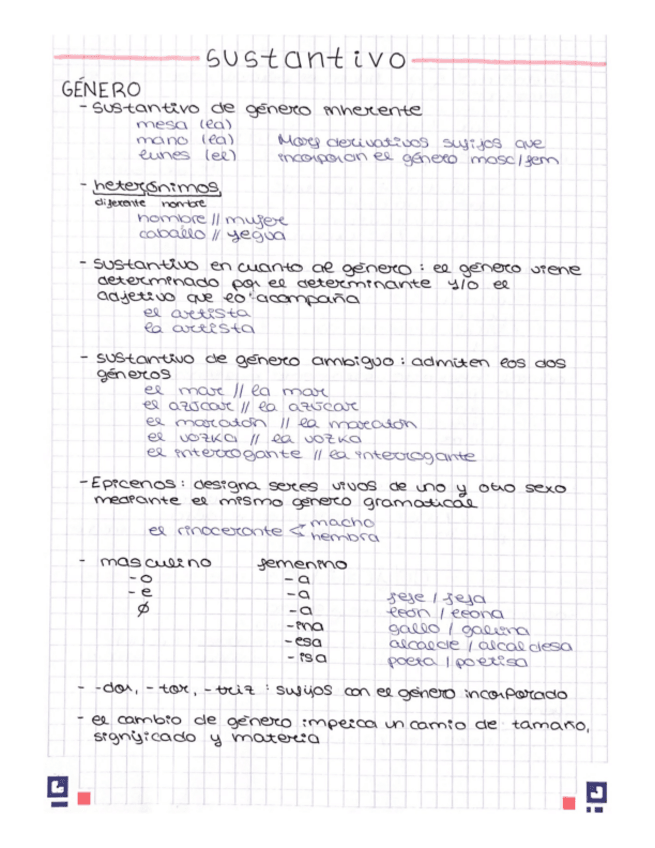 sustantivo
GÉNERO
- sustantivo de género inherente
mesa (la)
mano (la) Morf derivativos sufijos que
lunes (el) incorporan el género masc/fem
- heterónimos
diferente nombre
hombre // mujer
caballo // yegua
- sustantivo en cuanto al género: el género viene
determinado por el determinante y/o el
adjetivo que lo acompaña
el artista
la artista
- sustantivo de género ambiguo: admiten los dos
géneros
el mar // la mar
el azúcar // la azúcar
el maratón // la maratón
el vozka // la vozka
el interrogante // la interrogante
- Epicenos: designa seres vivos de uno y otro sexo
mediante el mismo género gramatical
el rinoceronte < macho
hembra
- masculino femenino
-o -a
-e -a jefe / jefa
ø -a león / leona
-ina gallo / gallina
-esa alcalde / alcaldesa
-isa poeta / poetisa
- -dor, -tor, -triz: sufijos con el género incorporado
- el cambio de género implica un camio de tamaño,
significado y materia